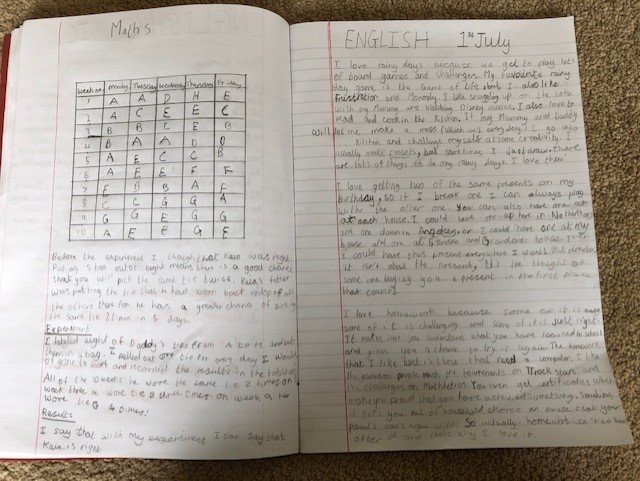 Maths
Week no. Monday Tuesday Wednesday Thursday Friday
1 A A D H E
2 A C E E C
3 B B C E B
4 B A A D D
5 A E C C B
6 A E E F F
7 E B B A F
8 C C G G A
9 G G E G G
10 A E C G F
Before the experiment I thought that Kaia was right.
Picking 5 ties out of eight means there is a good chance
that you will pick the same tie twice. Kaia's father
was putting the tie that he had worn back on top of all
the others therefor he has a greater chance of picking
the same tie 2 times in 5 days.
Experiment
I labeled eight of Daddy's ties from A to H and put
them in a bag. I pulled out one tie for every day I would
of gone to work and recorded the results in the table above
All of the weeks he wore the same tie 2 times on
week three he wore tie B three times. on week 9 he
wore tie G 4 times!
Results
I say that with my experiment I can say that
Kaia is right
ENGLISH 1st July
I love rainy days because we get to play lots
of board games and challenges. My favourite rainy
day game is the Game of life but I also like
frustration and Monopoly. I like snuggling up on the sofa
with my Mummy and watching Disney movies. I also love to
read and cook in the kitchen. If my Mummy and Daddy
will let me make a mess (Which isn't every day!) I go into
kitchen and challenge myself at some creativity. I
usually make but sometimes I just draw. There
are lots of things to do on rainy days. I love them!
I love getting two of the same presents on my
birthday, so if I break one I can always play
with the other one. You can also have one
at each house. I could have one up here in
and one down in or I could have one at my
house and one at Grandma and Grandad's house.
I could have this present everywhere I went. But remember
it isn't about the presents, it's the thought of
some one buying you a present in the first place
that counts.
I love homework because some of it is easy
some of it is challenging and some of it is just right.
It makes sure you understand what you have learned in school
and gives you a chance to try it again. The homework
that I like best is those that need a computer. I like
the tournaments on Track stars and
the challenges on Mathletics. You even get certificates which
proves that you have actively. Sometimes,
it gets you out of household chores an excuse that your
parents can't argue with! So actually, homework isn't so bad
after all and thats why I love it.